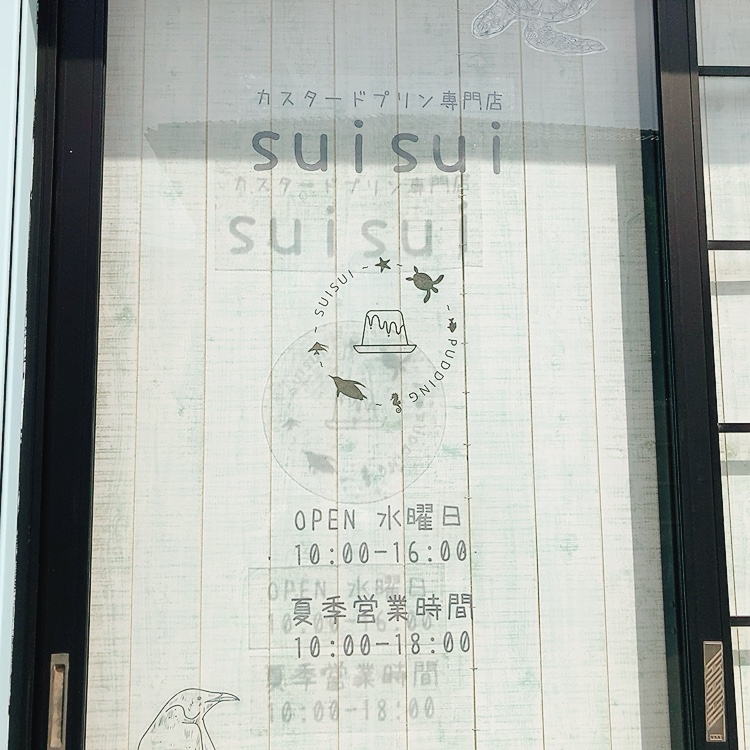 カスタードプリン専門店
suisui
SUISUI
PUDDING
OPEN 水曜日
10:00-16:00
夏季営業時間
10:00-18:00